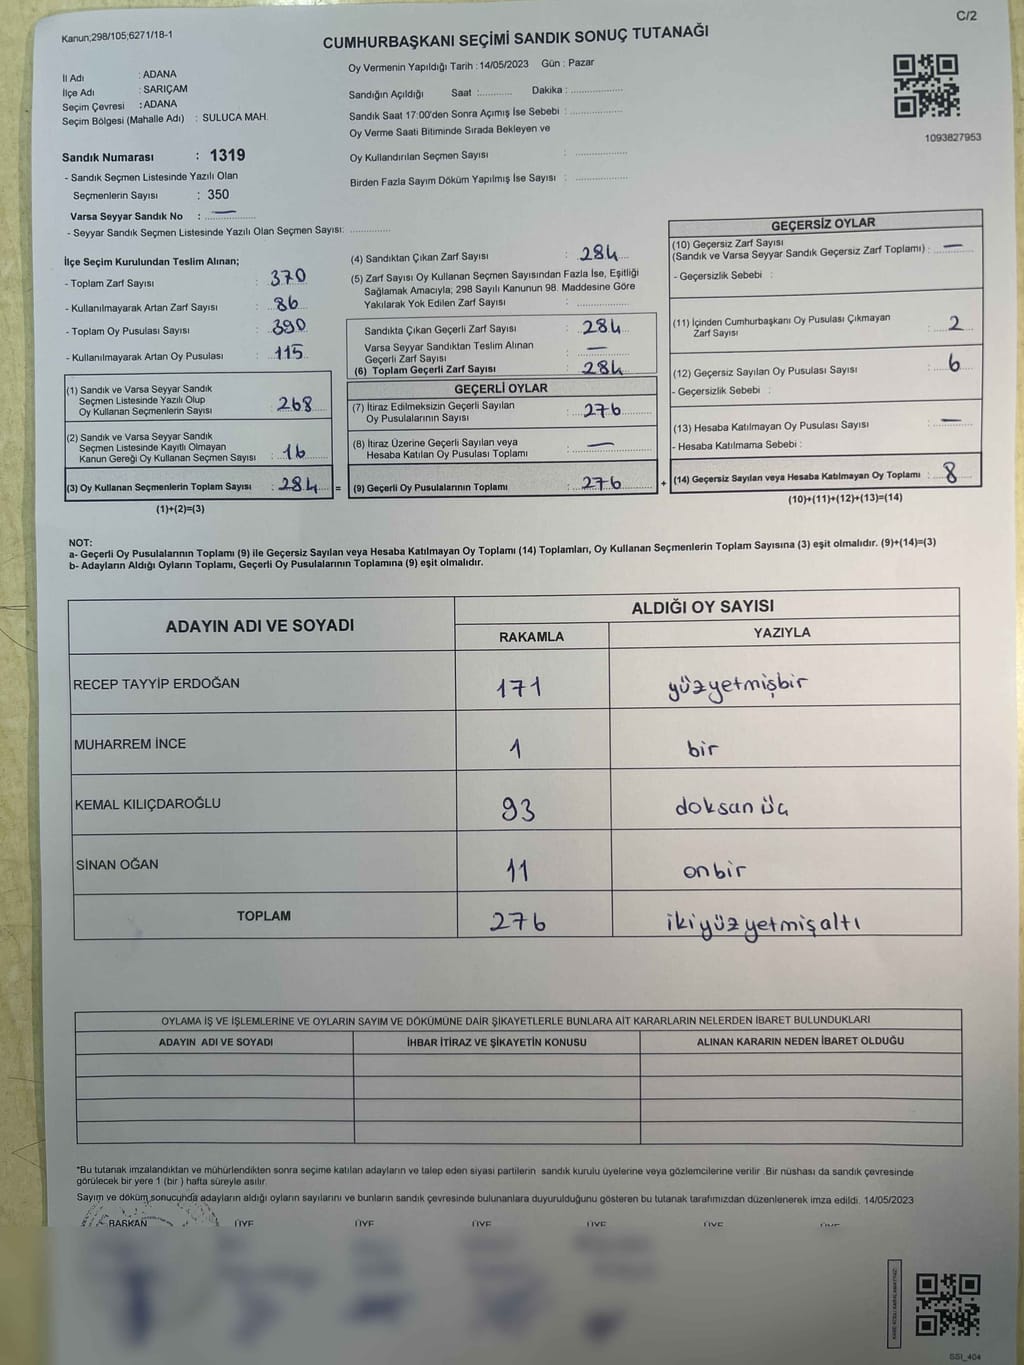 C/2
Kanun;298/105;6271/18-1
CUMHURBAŞKANI SEÇİMİ SANDIK SONUÇ TUTANAĞI
İl Adı : ADANA
İlçe Adı : SARIÇAM
Seçim Çevresi : ADANA
Seçim Bölgesi (Mahalle Adı) : SULUCA MAH.
Sandık Numarası : 1319
- Sandık Seçmen Listesinde Yazılı Olan
Seçmenlerin Sayısı : 350
Varsa Seyyar Sandık No : —
- Seyyar Sandık Seçmen Listesinde Yazılı Olan Seçmen Sayısı: ..............
Oy Vermenin Yapıldığı Tarih : 14/05/2023 Gün : Pazar
Sandığın Açıldığı Saat :........... Dakika : .................
Sandık Saat 17:00'den Sonra Açımış İse Sebebi : .................
Oy Verme Saati Bitiminde Sırada Bekleyen ve
Oy Kullandırılan Seçmen Sayısı : .................
Birden Fazla Sayım Döküm Yapılmış İse Sayısı : .................
1093827953
İlçe Seçim Kurulundan Teslim Alınan;
- Toplam Zarf Sayısı : 370
- Kullanılmayarak Artan Zarf Sayısı : 86
- Toplam Oy Pusulası Sayısı : 390
- Kullanılmayarak Artan Oy Pusulası : 115
(1) Sandık ve Varsa Seyyar Sandık
Seçmen Listesinde Yazılı Olup
Oy Kullanan Seçmenlerin Sayısı : 268
(2) Sandık ve Varsa Seyyar Sandık
Seçmen Listesinde Kayıtlı Olmayan
Kanun Gereği Oy Kullanan Seçmen Sayısı : 16
(3) Oy Kullanan Seçmenlerin Toplam Sayısı : 284 =
(1)+(2)=(3)
(4) Sandıktan Çıkan Zarf Sayısı : 284
(5) Zarf Sayısı Oy Kullanan Seçmen Sayısından Fazla İse, Eşitliği
Sağlamak Amacıyla; 298 Sayılı Kanunun 98. Maddesine Göre
Yakılarak Yok Edilen Zarf Sayısı : .................
Sandıkta Çıkan Geçerli Zarf Sayısı : 284
Varsa Seyyar Sandıktan Teslim Alınan
Geçerli Zarf Sayısı : —
(6) Toplam Geçerli Zarf Sayısı : 284
GEÇERLİ OYLAR
(7) İtiraz Edilmeksizin Geçerli Sayılan
Oy Pusulalarının Sayısı : 276
(8) İtiraz Üzerine Geçerli Sayılan veya
Hesaba Katılan Oy Pusulası Toplamı : —
(9) Geçerli Oy Pusulalarının Toplamı : 276 +
GEÇERSİZ OYLAR
(10) Geçersiz Zarf Sayısı
(Sandık ve Varsa Seyyar Sandık Geçersiz Zarf Toplamı) : —
- Geçersizlik Sebebi :
(11) İçinden Cumhurbaşkanı Oy Pusulası Çıkmayan
Zarf Sayısı : 2
(12) Geçersiz Sayılan Oy Pusulası Sayısı : 6
- Geçersizlik Sebebi :
(13) Hesaba Katılmayan Oy Pusulası Sayısı : —
- Hesaba Katılmama Sebebi :
(14) Geçersiz Sayılan veya Hesaba Katılmayan Oy Toplamı : 8
(10)+(11)+(12)+(13)=(14)
NOT:
a- Geçerli Oy Pusulalarının Toplamı (9) ile Geçersiz Sayılan veya Hesaba Katılmayan Oy Toplamı (14) Toplamları, Oy Kullanan Seçmenlerin Toplam Sayısına (3) eşit olmalıdır. (9)+(14)=(3)
b- Adayların Aldığı Oyların Toplamı, Geçerli Oy Pusulalarının Toplamına (9) eşit olmalıdır.
ADAYIN ADI VE SOYADI ALDIĞI OY SAYISI
RAKAMLA YAZIYLA
RECEP TAYYİP ERDOĞAN 171 yüzyetmişbir
MUHARREM İNCE 1 bir
KEMAL KILIÇDAROĞLU 93 doksan üç
SİNAN OĞAN 11 onbir
TOPLAM 276 ikiyüzyetmişaltı
OYLAMA İŞ VE İŞLEMLERİNE VE OYLARIN SAYIM VE DÖKÜMÜNE DAİR ŞİKAYETLERLE BUNLARA AİT KARARLARIN NELERDEN İBARET BULUNDUKLARI
ADAYIN ADI VE SOYADI İHBAR İTİRAZ VE ŞİKAYETİN KONUSU ALINAN KARARIN NEDEN İBARET OLDUĞU
*Bu tutanak imzalandıktan ve mühürlendikten sonra seçime katılan adayların ve talep eden siyasi partilerin sandık kurulu üyelerine veya gözlemcilerine verilir .Bir nüshası da sandık çevresinde
görülecek bir yere 1 (bir ) hafta süreyle asılır.
Sayım ve döküm sonucunda adayların aldığı oyların sayılarını ve bunların sandık çevresinde bulunanlara duyurulduğunu gösteren bu tutanak tarafımızdan düzenlenerek imza edildi. 14/05/2023
BAŞKAN ÜYE ÜYE ÜYE ÜYE ÜYE ÜYE
SSI_404